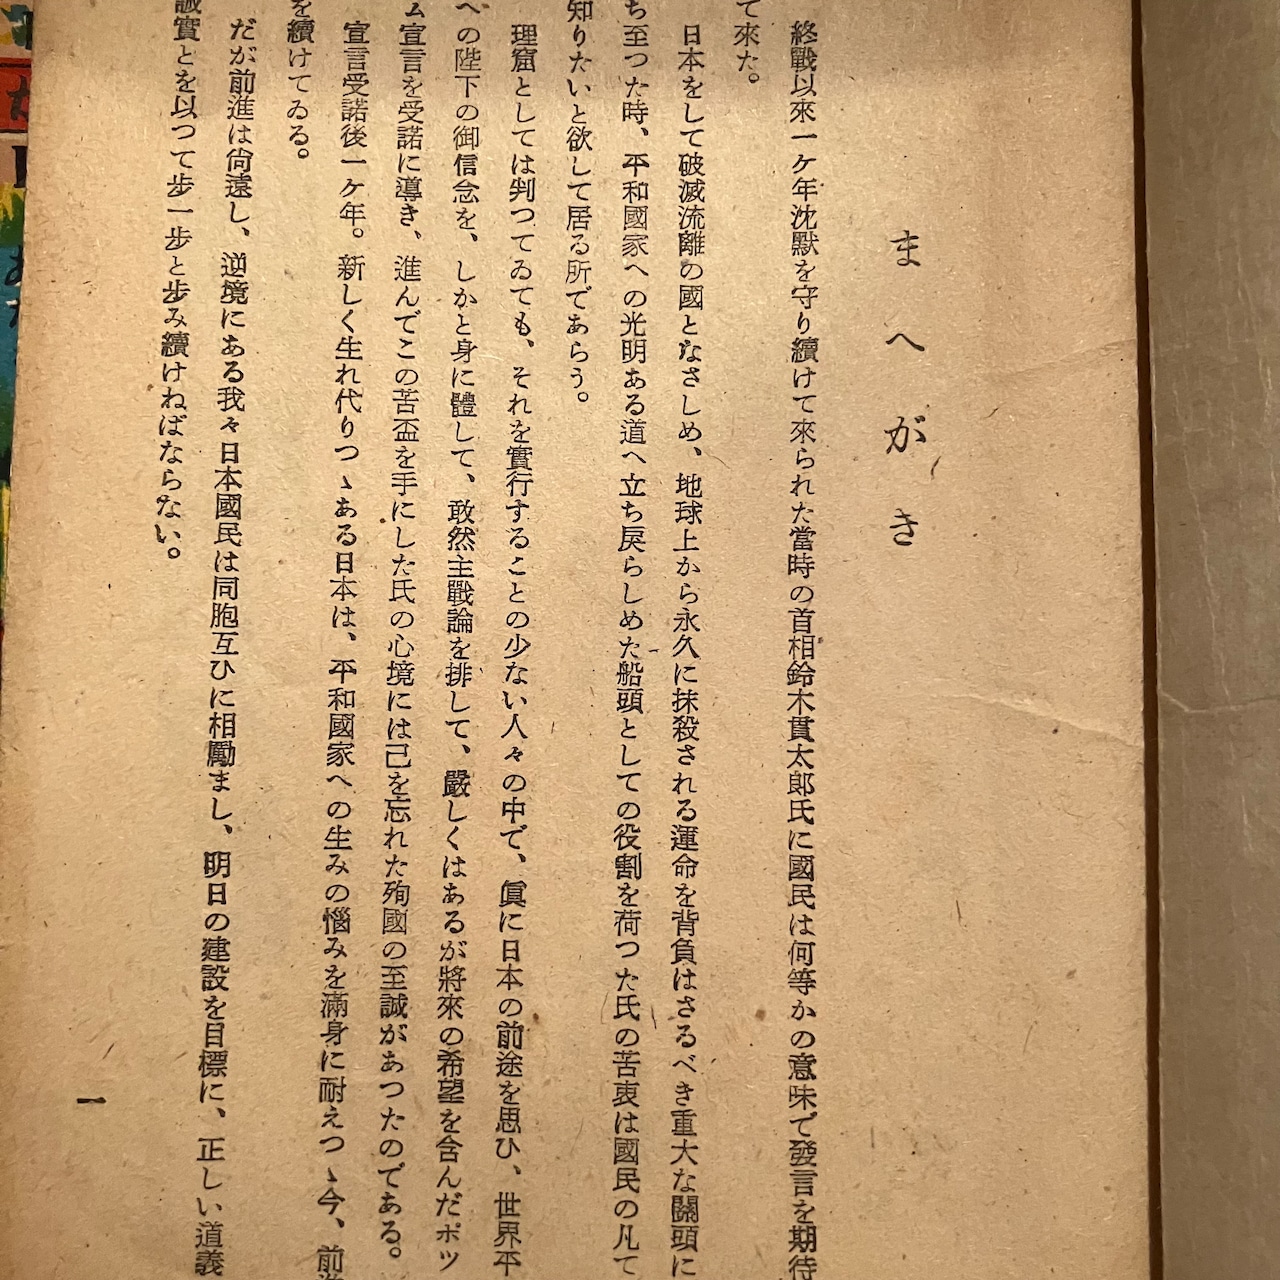 まへがき
終戰以來一ケ年沈默を守り續けて來られた當時の首相鈴木貫太郎氏に國民は何等かの意味で發言を期待
て來た。
日本をして破滅流離の國となさしめ、地球上から永久に抹殺される運命を背負はさるべき重大な關頭に
ち至つた時、平和國家への光明ある道へ立ち戻らしめた船頭としての役割を荷つた氏の苦衷は國民の凡て
知りたいと欲して居る所であらう。
理窟としては判つてゐても、それを實行することの少ない人々の中で、眞に日本の前途を思ひ、世界平
への陛下の御信念を、しかと身に體して、敢然主戰論を排して、嚴しくはあるが將來の希望を含んだポツ
ム宣言を受諾に導き、進んでこの苦盃を手にした氏の心境には己を忘れた殉國の至誠があつたのである。
宣言受諾後一ケ年。新しく生れ代りつゝある日本は、平和國家への生みの惱みを滿身に耐えつゝ今、前進
を續けてゐる。
だが前進は尙遠し、逆境にある我々日本國民は同胞互ひに相勵まし、明日の建設を目標に、正しい道義
誠實とを以つて步一步と步み續けねばならない。
一